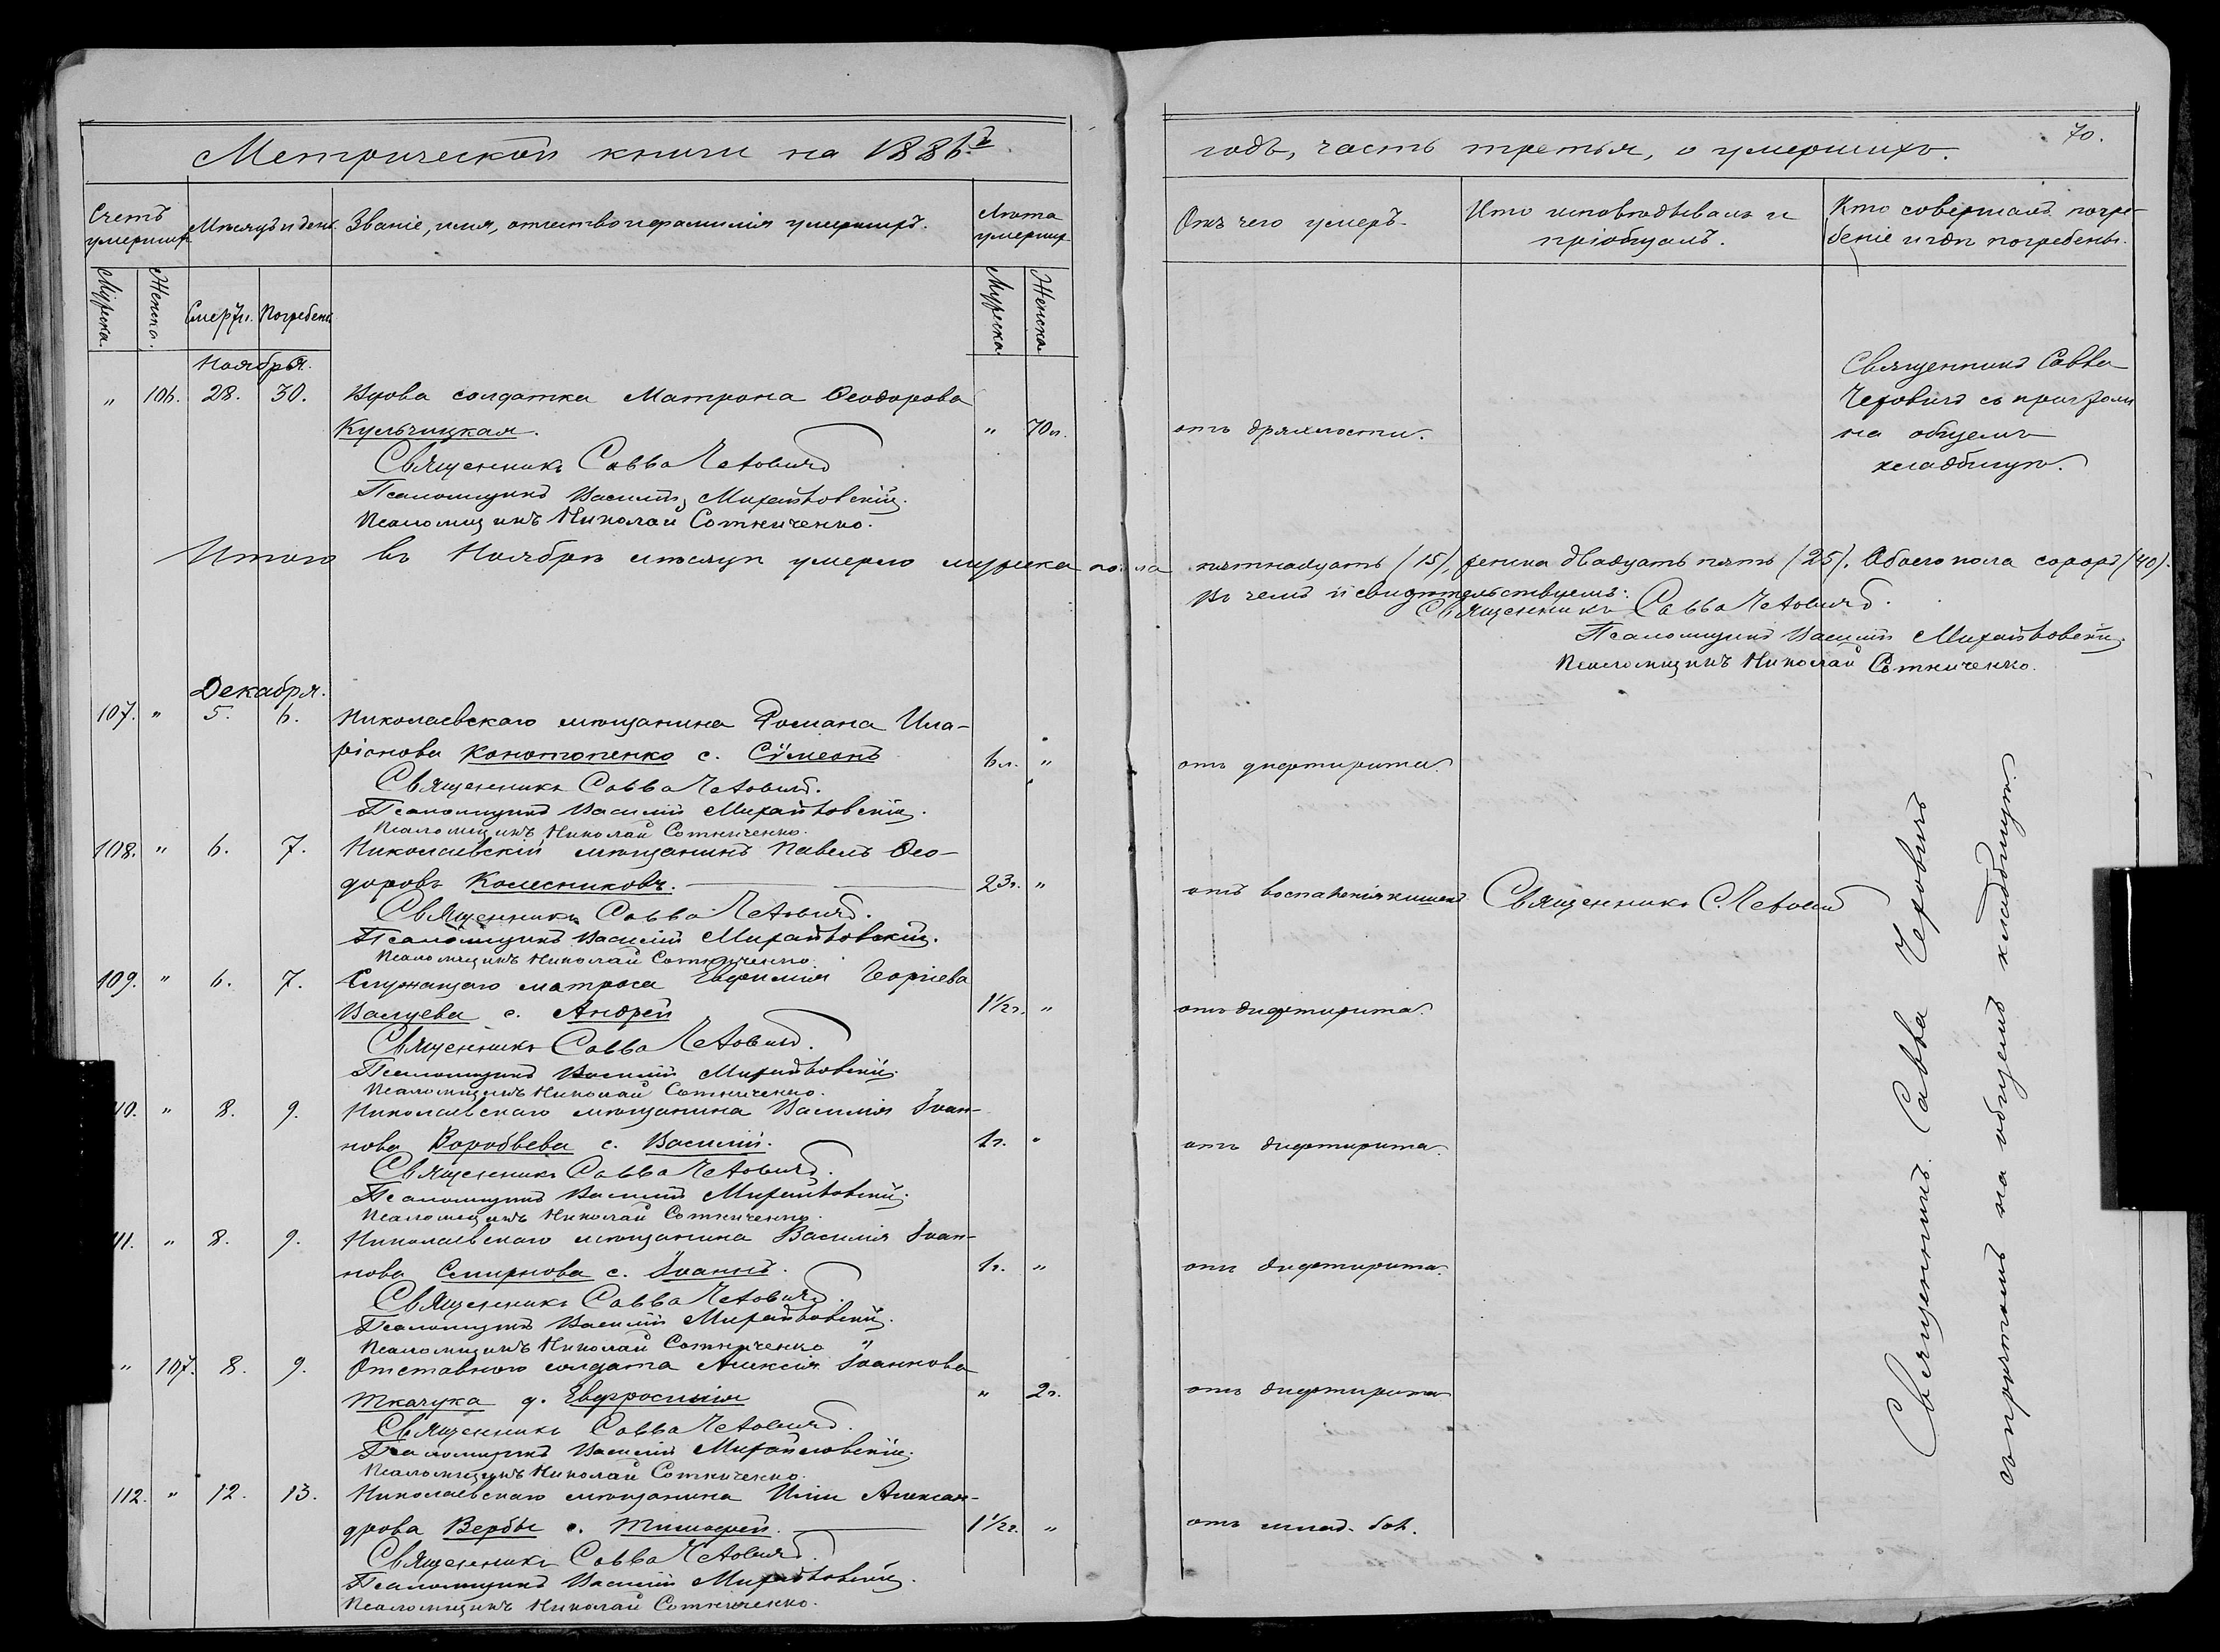 Метрической книги на 1886й
годъ, часть третья, о умершихъ.
70.
Счетъ умершихъ.
Мѣсяцъ и день.
Званіе, имя, отчество и фамилія умершихъ.
Лѣта умерших.
Отъ чего умеръ.
Кто исповѣдывалъ и пріобщалъ.
Кто совершалъ погребеніе и гдѣ погребены.
Мужеска.
Женска.
Смерти.
Погребен.
Мужеска
Женска
Ноября.
" 106. 28. 30. Вдова солдатка Матрона Ѳеодорова
Кульчицкая. " 70л. отъ дряхлости.
Священникъ Савва
Чехович съ причтомъ
на общемъ
кладбищѣ.
Священникъ Савва Чеховичъ
Псаломщикъ Василій Михайловскій.
Псаломщикъ Николай Сотниченко.
Итого въ Ноябрѣ мѣсяцѣ умерло мужеска пола пятнадцать (15), женска двадцать пять (25). Обоего пола сорокъ (40).
Въ чемъ и свидѣтельствуемъ:
Священникъ Савва Чеховичъ.
Псаломщикъ Василій Михайловскій.
Псаломщикъ Николай Сотниченко.
Декабря.
107. " 5. 6. Николаевскаго мѣщанина Романа Ила-
ріонова Конотопенко с. Сѵмеонъ 6л. " отъ дифтирита.
Священникъ Савва Чеховичъ.
Псаломщикъ Василій Михайловскій.
Псаломщикъ Николай Сотниченко.
108. " 6. 7. Николаевскій мѣщанинъ Павелъ Ѳео-
доровъ Колесниковъ. 23г. " отъ воспаленія кишекъ Священникъ С. Чехович
Священникъ Савва Чеховичъ.
Псаломщикъ Василій Михайловскій.
Псаломщикъ Николай Сотниченко.
109. " 6. 7. Служащаго матроса Евфимія Георгіева
Валуева с. Андрей 1½г. " отъ дифтирита.
Священникъ Савва Чеховичъ.
Псаломщикъ Василій Михайловскій.
Псаломщикъ Николай Сотниченко.
110. " 8. 9. Николаевскаго мѣщанина Василія Іоан-
нова Воробьева с. Василій. 1г. " отъ дифтирита.
Священникъ Савва Чеховичъ.
Псаломщикъ Василій Михайловскій.
Псаломщикъ Николай Сотниченко.
111. " 8. 9. Николаевскаго мѣщанина Василія Іоан-
нова Смирнова с. Іоаннъ. 1г. " отъ дифтирита.
Священникъ Савва Чеховичъ.
Псаломщикъ Василій Михайловскій.
Псаломщикъ Николай Сотниченко
" 107. 8. 9. Отставного солдата Алексія Іоаннова
Ткачука д. Евфросинія " 2г. отъ дифтирита
Священникъ Савва Чеховичъ.
Псаломщикъ Василій Михайловскій.
Псаломщикъ Николай Сотниченко.
112. " 12. 13. Николаевскаго мѣщанина Иліи Алексан-
дрова Вербы с. Тимоѳей. 1½г. " отъ млад. бол.
Священникъ Савва Чеховичъ.
Псаломщикъ Василій Михайловскій.
Псаломщикъ Николай Сотниченко.
Священникъ Савва Чеховичъ
съ причтомъ на общемъ кладбищѣ.